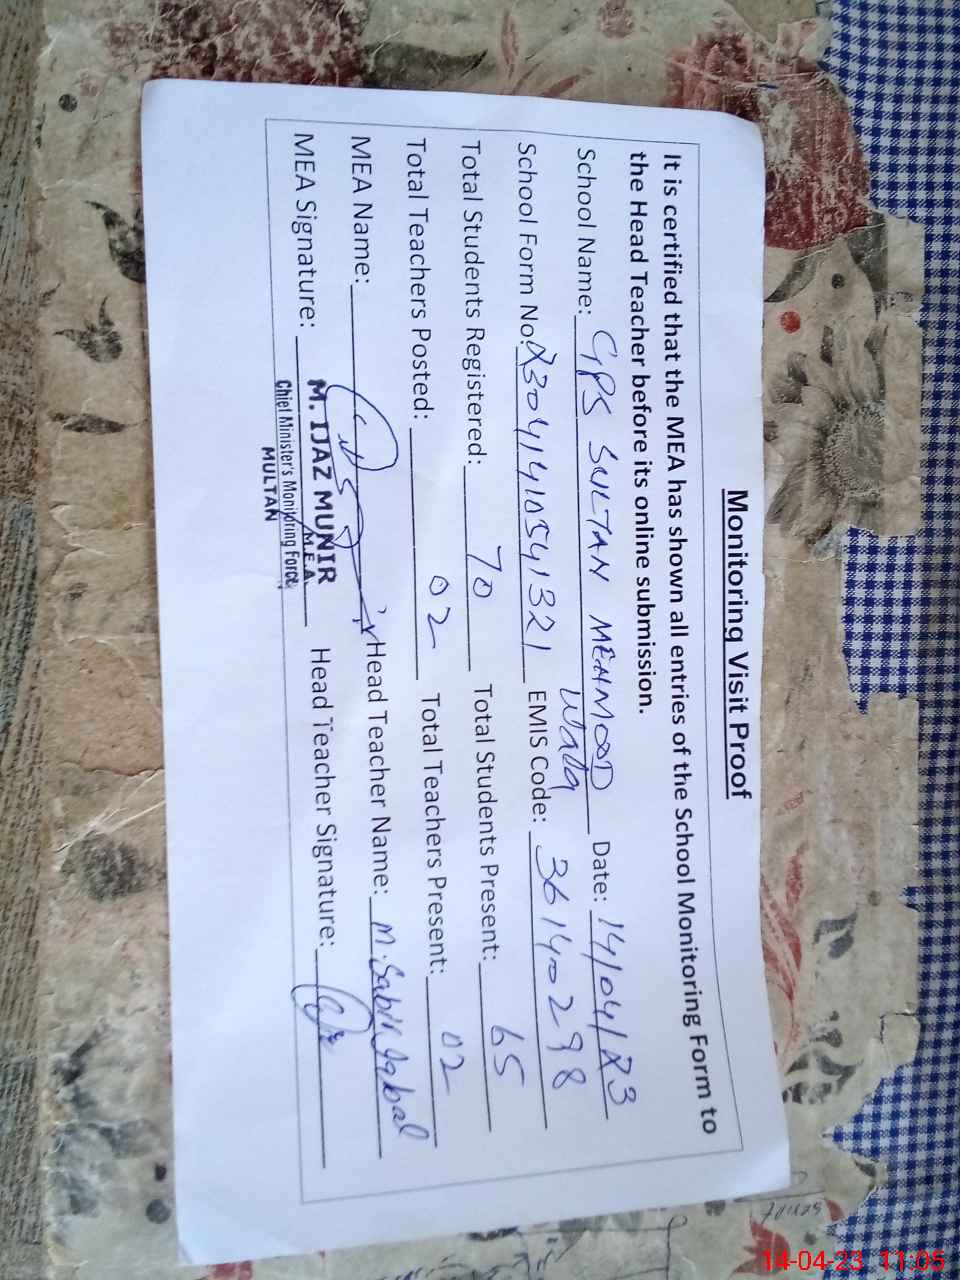 Monitoring Visit Proof
It is certified that the MEA has shown all entries of the School Monitoring Form to
the Head Teacher before its online submission.
School Name: GPS SULTAN MEHMOOD Wala Date: 14/04/23
School Form No: 23041410541321 EMIS Code: 36140298
Total Students Registered: 70 Total Students Present: 65
Total Teachers Posted: 02 Total Teachers Present: 02
MEA Name: Head Teacher Name: M. Sabir Iqbal
MEA Signature: Head Teacher Signature:
M. IJAZ MUNIR
M.E.A
Chief Minister's Monitoring Force
MULTAN
14-04-23 11:05